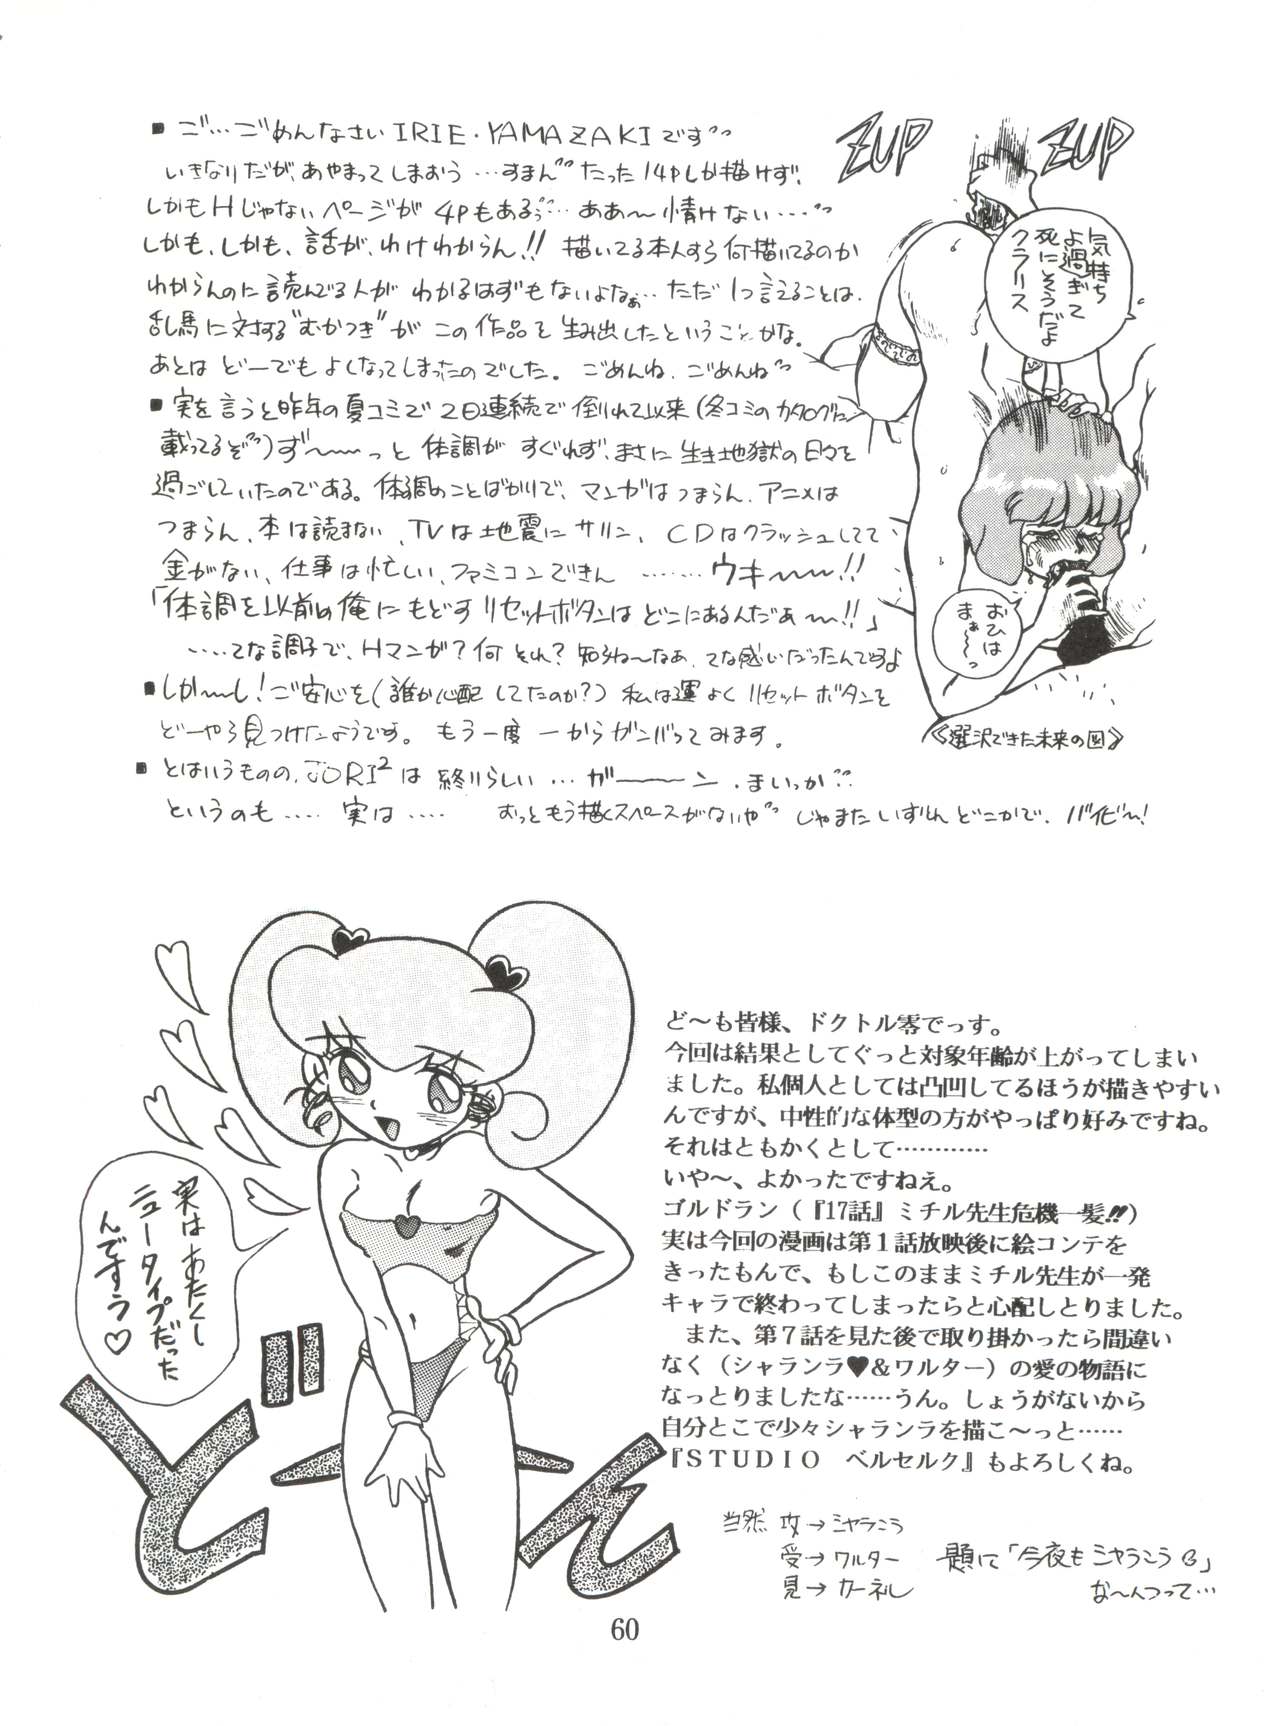 ■ ご…ごめんなさい IRIE・YAMAZAKIです
いきなりだが、あやまってしまおう…すまん たった14Pしか描けず、
しかもHじゃないページが 4Pもあるぅ… ああ〜情けない…
しかも、しかも、話が、わけわからん!! 描いてる本人すら何描いてるのか
わからんのに読んでる人が わかるはずもないよなぁ… ただ1つ言えることは、
乱馬に対する"むかつき"が この作品を生み出したということかな。
あとは どーでもよくなってしまったのでした。 ごめんね、ごめんね
■ 実を言うと昨年の夏コミで 2日連続で倒れて以来(冬コミのカタログに
載ってるぞ)ず〜〜っと 体調が すぐれず、まさに生き地獄の日々を
過ごしていたのである。体調のことばかりで、マンガはつまらん、アニメは
つまらん、本は読まない、TVは地震にサリン、CDはクラッシュしてて
金がない、仕事は忙しい、ファミコンできん ……ウキ〜〜!!
「体調を以前の俺にもどすリセットボタンは どこにあるんだぁ〜!!」
……てな調子で、Hマンガ?何それ? 知らね〜なぁ、てな感じだったんですよ
■ しか〜〜し!ご安心を(誰か心配してたのか?) 私は運よくリセットボタンを
どーやら見つけたようです。もう一度 一からガンバってみます。
■ とはいうものの、JORI²は 終りらしい … ガ〜〜ン、まいっか
というのも …… 実は …… おっともう描くスペースがないや じゃまた いずれ どこかで、バイビ〜!
ZUP
ZUP
気持ち
よ過ぎて
死にそうだよ
クラリス
おひは
まぁ〜っ
《選択できた未来の図》
ど〜も皆様、ドクトル零でっす。
今回は結果としてぐっと対象年齢が上がってしまい
ました。私個人としては凸凹してるほうが描きやすい
んですが、中性的な体型の方がやっぱり好みですね。
それはともかくとして…………
いや〜、よかったですねえ。
ゴルドラン(『17話』ミチル先生危機一髪!!)
実は今回の漫画は第1話放映後に絵コンテを
きったもんで、もしこのままミチル先生が一発
キャラで終わってしまったらと心配しとりました。
また、第7話を見た後で取り掛かったら間違い
なく(シャランラ♥&ワルター)の愛の物語に
なっとりましたな……うん。しょうがないから
自分とこで少々シャランラを描こ〜っと……
『STUDIO ベルセルク』もよろしくね。
当然 攻→シャらこう
受→ワルター
見→カーネル
題に「今夜もシャらこう」
な〜んつって…
実はあたくし
ニュータイプだった
んですう♡
ど〜ん
60